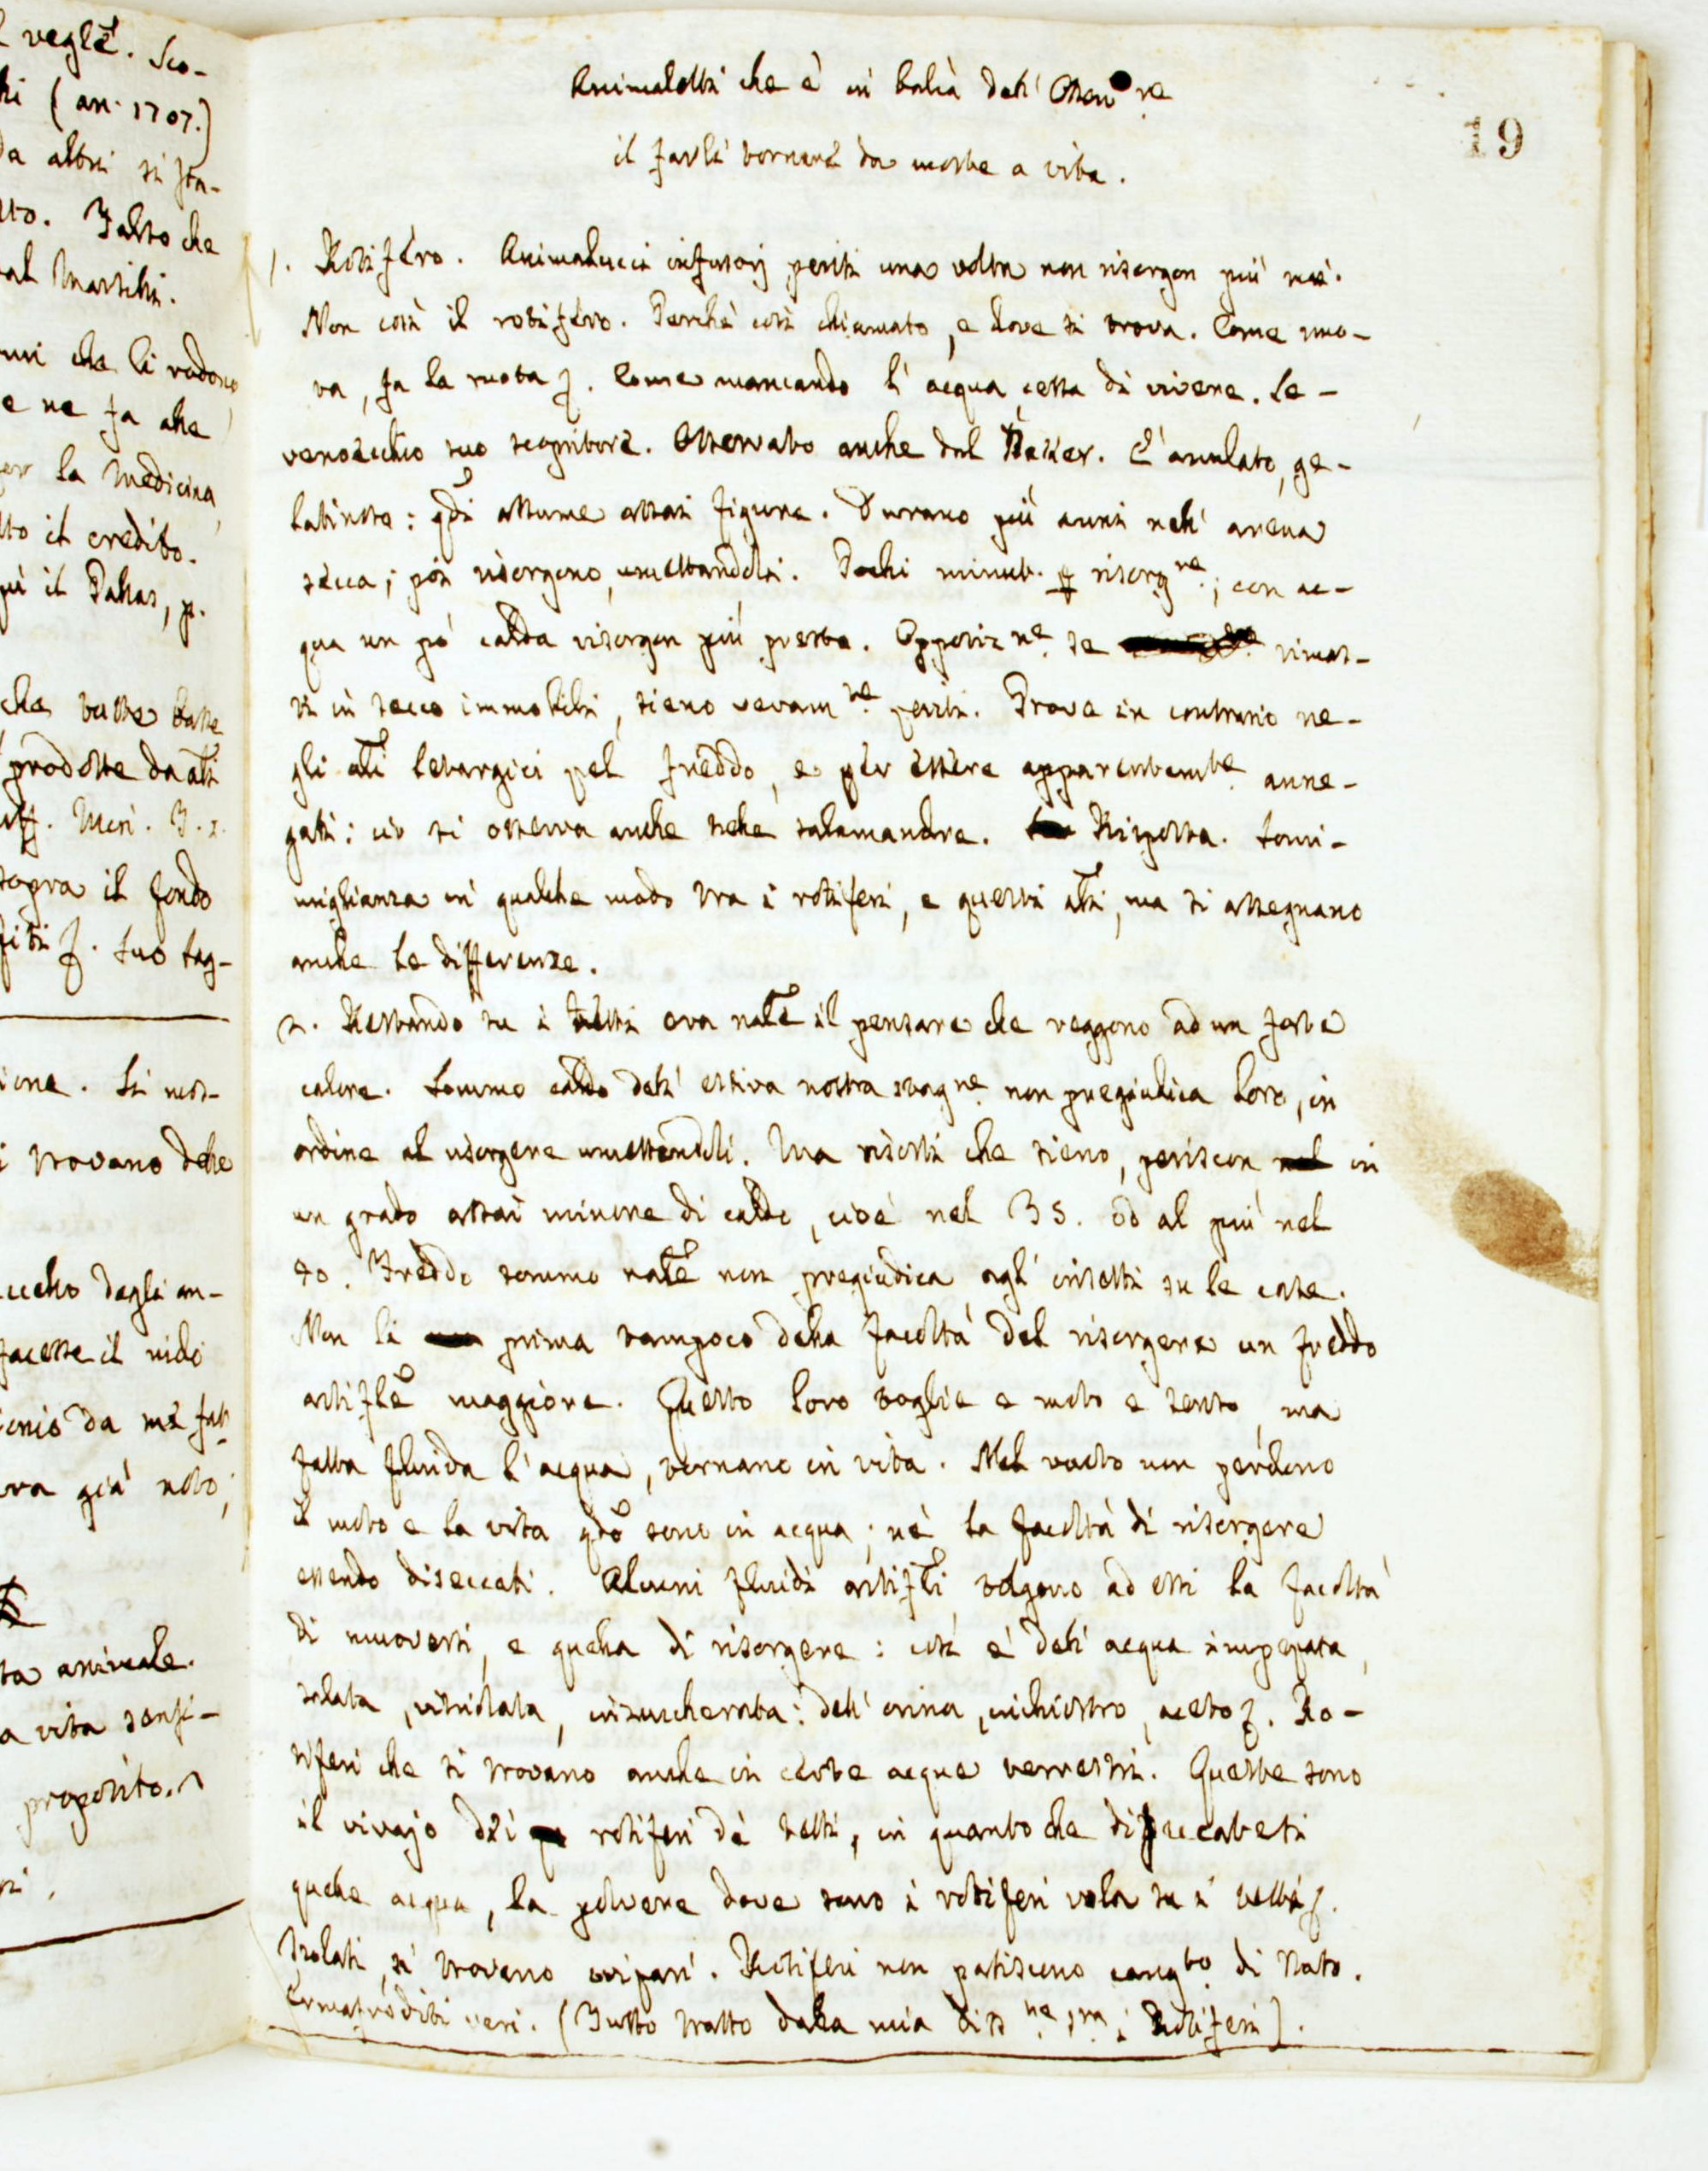 l vegle. Sco-
hi (an. 1707.)
da altri si
tto. Falso che
al Marsili.
che li rodono
e ne fa che
per la Medicina
tto il credito.
il Pallas, p.
che tutte
prodotte da ali
sopra il fondo
suo
ione. Si
i trovano delle
degli an-
facesse il nido
da me
era già noto;
ta animale.
a vita sensi-
proposito.
19
Animaletti che è in balìa dell' Osser.re
il farli tornare da morte a vita.
1. Rotifero. Animalucci infusorj periti una volta non risorgon più mai.
Non così il rotifero. Perchè così chiamato, e dove si trova. Come muo-
va, fa la ruota &. Come mancando l' acqua cessa di vivere. Le-
venoecchio suo scopritore. Osservato anche dal Backer. E' anulato, ge-
latinoso: qdi assume assai figure. Durano più anni nell' arena
secca; poi risorgono, umettandoli. Pochi minut. p risorg.re; con ac-
qua un pò calda risorgon più presto. Opposiz.ne se rimas-
ti in secco immobili, sieno veram.te periti. Prove in contrario ne-
gli ali letargici pel freddo, e per essere apparentem.te anne-
gati: ciò si osserva anche nelle salamandre. Risposta. Somi-
miglianza in qualche modo tra i rotiferi, e questi ali, ma si assegnano
anche le differenze.
2. Restando su i tetti era nale il pensare che reggono ad un forte
calore. Sommo caldo dell' estiva nostra stag.ne non pregiudica loro, in
ordine al risorgere umettandoli. Ma risorti che sieno, periscon in
un grado assai minore di caldo, cioè nel 35. od al più nel
40. Freddo sommo nale non pregiudica agl' insetti su le coste.
Non li priva tampoco della facoltà del risorgere un freddo
artifle maggiore. Questo loro toglie e moto e senso, ma
fatta fluida l' acqua, tornano in vita. Nel vuoto non perdono
il moto e la vita qdo sono in acqua; nè la facoltà di risorgere
essendo diseccati. Alcuni fluidi artifli tolgono ad essi la facoltà
di muoversi, e quella di risorgere: così è dell' acqua impepata,
salata, vitriolata, inzuccherata: dell' orina, inchiostro, aceto &. Ro-
tiferi che si trovano anche in certe acque terrestri. Queste sono
il vivajo dei rotiferi de' tetti, in quanto che diseccatesi
quelle acque, la polvere dove sono i rotiferi vola su i tetti &.
Isolati, si trovano ovipari. Rotiferi non patiscono cang.to di stato.
Ermafroditi veri. (Tutto tratto dalla mia diss.ne i Rotiferi).